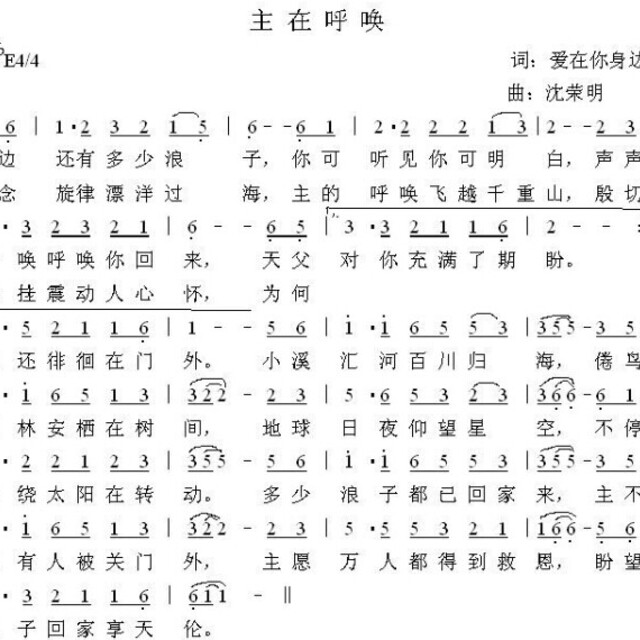 主在呼唤
E4/4
词：爱在你身边
曲：沈荣明
6 | 1·2 3 2 1 5 | 6 - - 6 1 | 2·2 2 2 1 3 | 2 - - 2 3
边 还有多少浪 子，你可 听见你可明 白，声声
念 旋律漂洋过 海，主的 呼唤飞越千重山，殷切
· 3 2 3 2 1 | 6 - - 6 5 | 3·3 2 2 1 1 6 | 2 - - :
唤呼唤你回 来， 天父 对你充满了期 盼。
挂震动人心 怀， 为何
· 5 2 1 1 6 | 1 - - 5 6 | i·i 6 5 5 3 | 3 5 5 - 3 5
还徘徊在门 外。 小溪 汇河百川归 海，倦鸟
· 1 6 5 1 3 | 3 2 2 - 2 3 | 5·6 5 3 2 3 | 3 6 6 - 6 1
林安栖在树 间， 地球 日夜仰望星 空，不停
· 2 2 1 2 3 | 3 5 5 - 5 6 | i·i 6 5 5 3 | 3 5 5 - 3 5
绕太阳在转 动。 多少 浪子都已回家 来，主不
· i 6 5 1 3 | 3 2 2 - 2 3 | 5·5 5 3 2 1 | 1 6 6 - 5 6
有人被关门 外， 主愿 万人都得到救 恩，盼望
· 3 2 1 1 6 | 6 1 1 - ‖
子回家享天 伦。